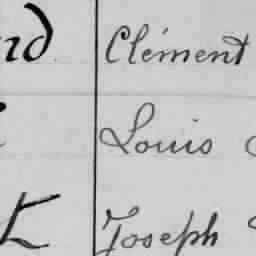 nd Clément
Louis
Joseph